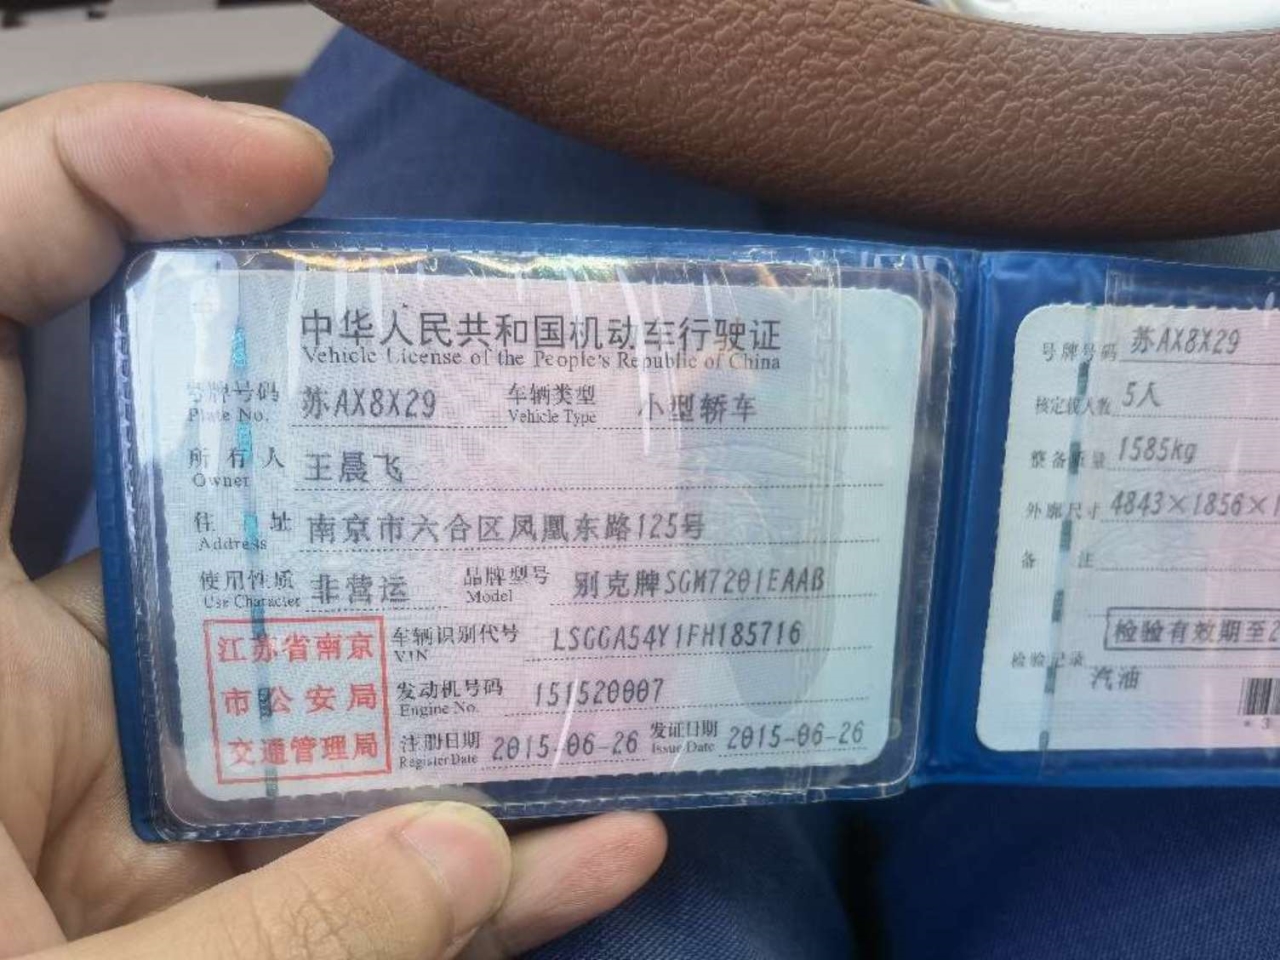 中华人民共和国机动车行驶证
Vehicle License of the People's Republic of China
号牌号码 苏AX8X29 车辆类型 小型轿车
Plate No. Vehicle Type
所有人 王晨飞
Owner
住址 南京市六合区凤凰东路125号
Address
使用性质 非营运 品牌型号 别克牌SGM7201EAAB
Use Character Model
江苏省南京
市公安局
交通管理局
车辆识别代号 LSGGA54Y1FH185716
VIN
发动机号码 151520007
Engine No.
注册日期 2015-06-26 发证日期 2015-06-26
Register Date Issue Date
号牌号码 苏AX8X29
核定载人数 5人
整备质量 1585kg
外廓尺寸 4843×1856×1
备注
检验有效期至2
检验记录
汽油
*3